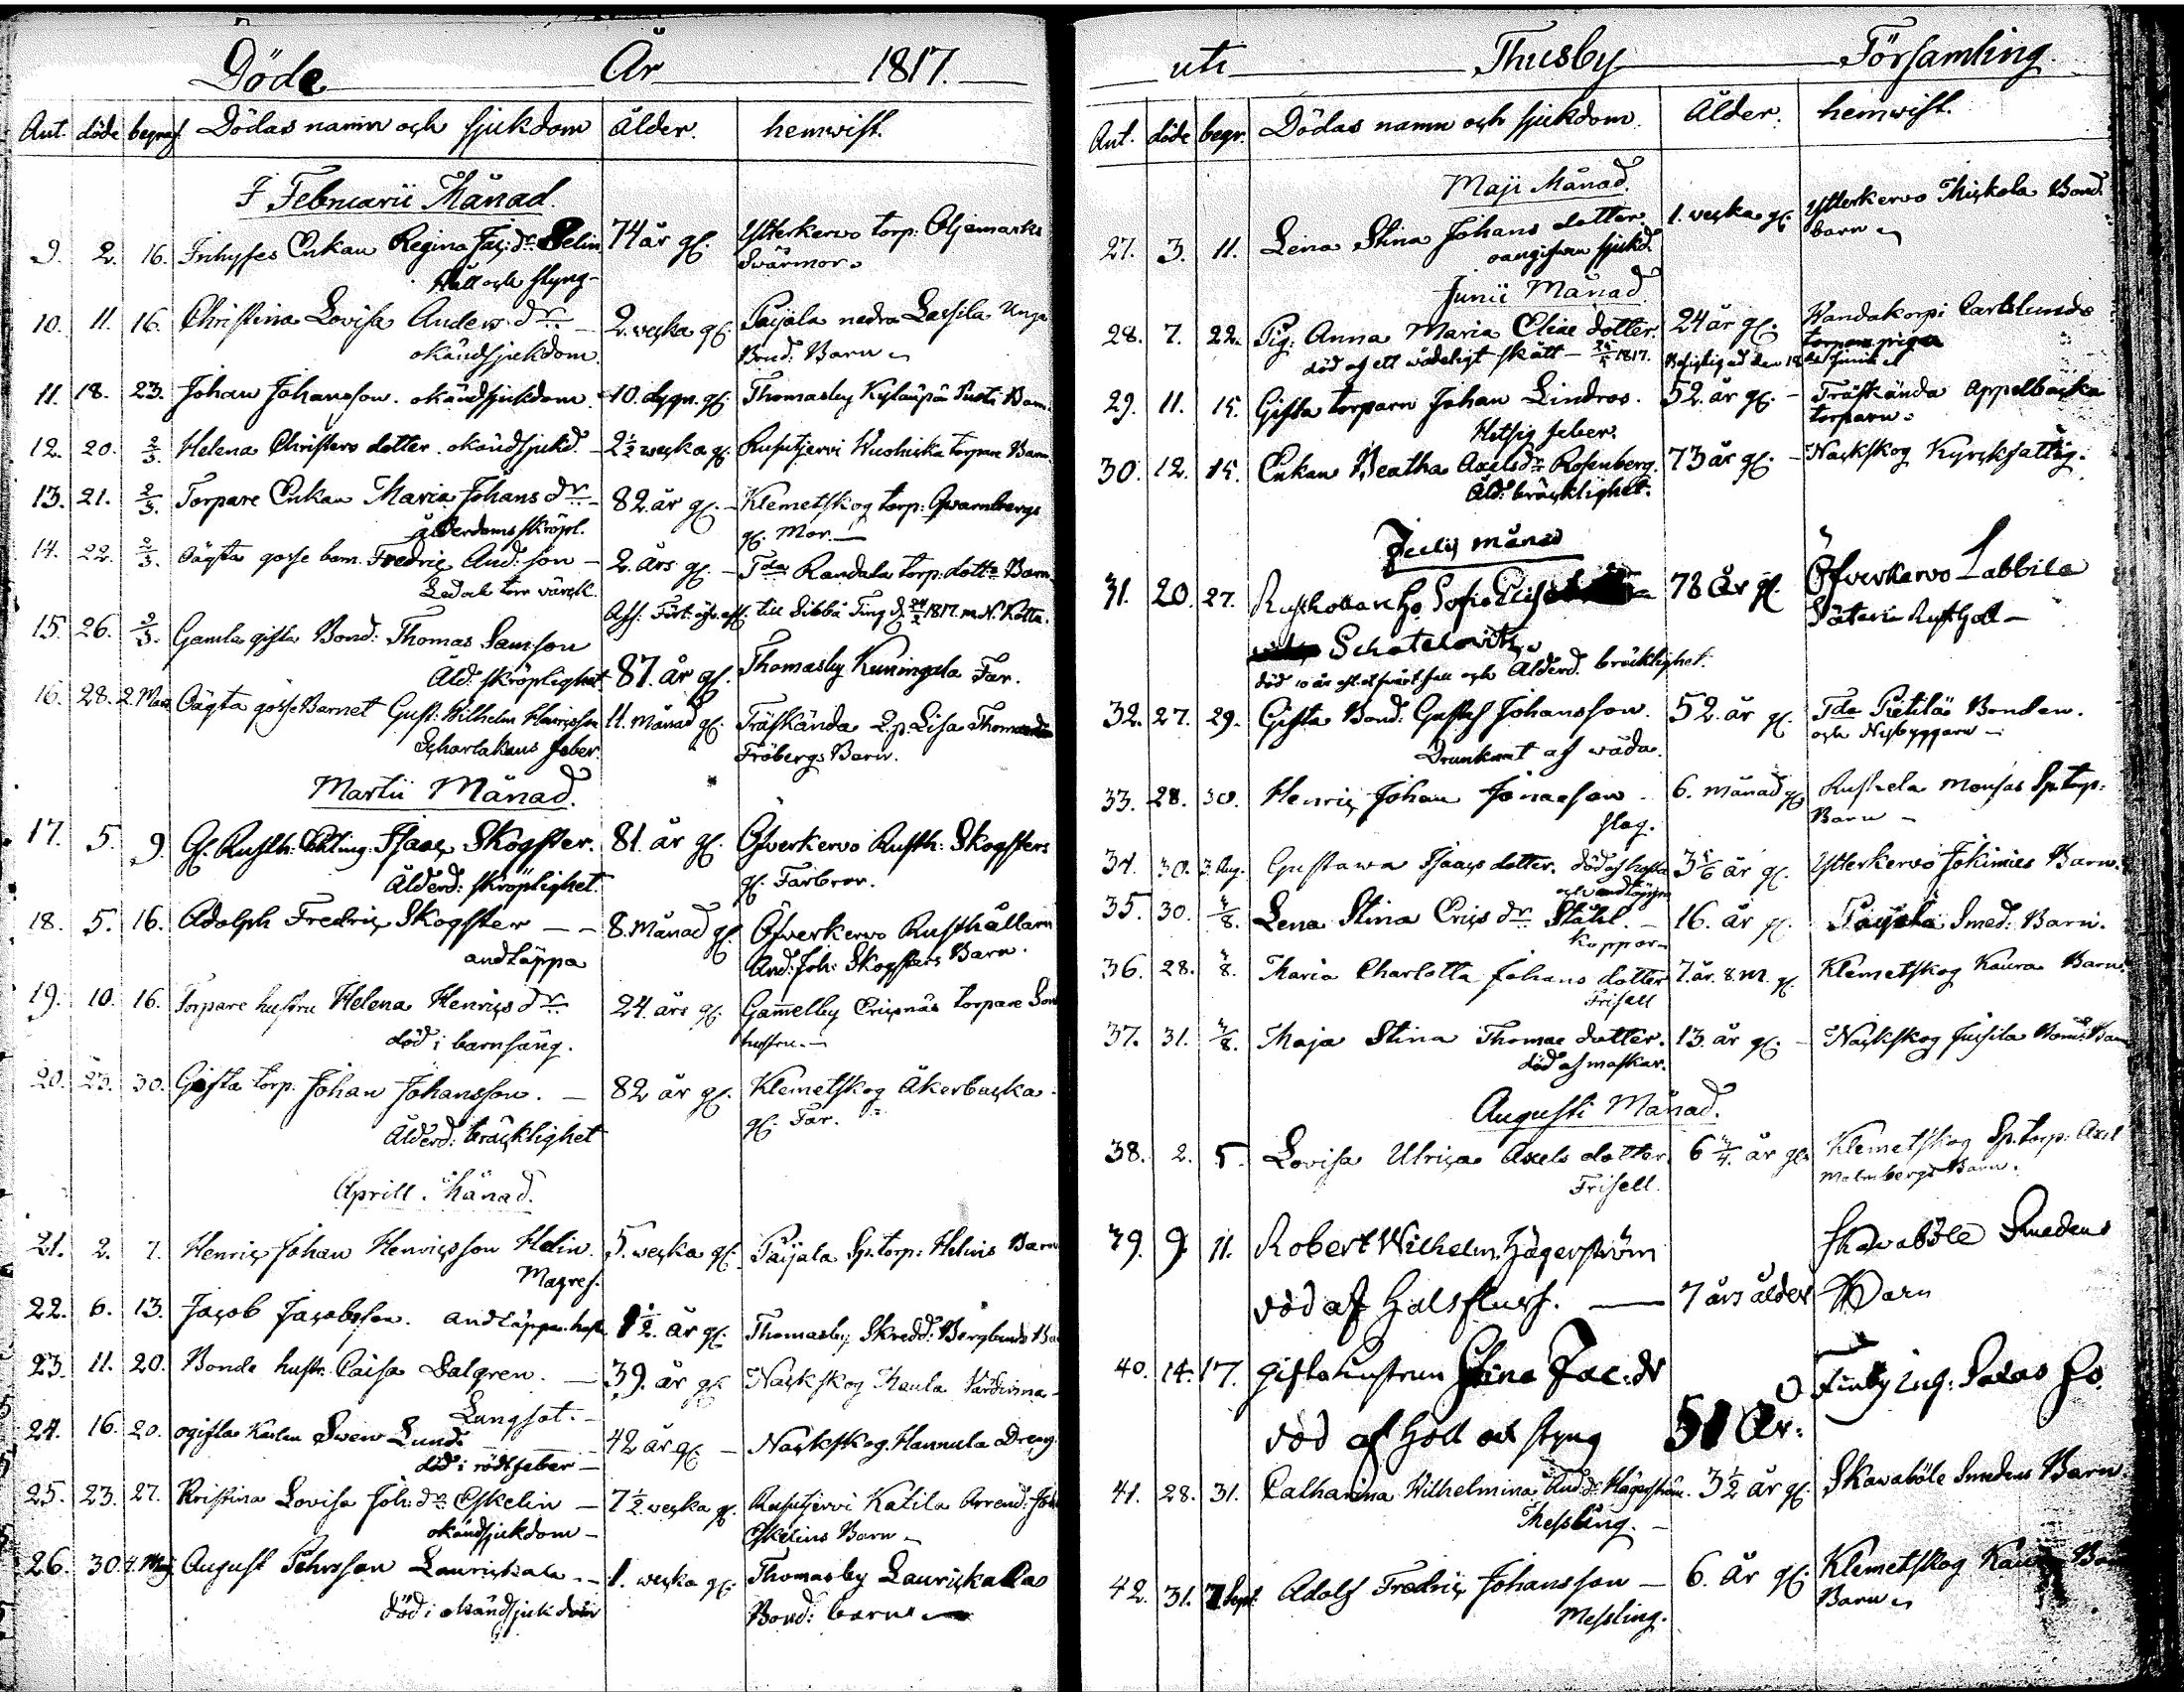 Döde År 1817.
Ant. döde begraf. Dödas namn och sjukdom Ålder. hemvist.
I Februarii Månad.
9. 2. 16. Inhyses Enkan Regina Jac: dr Selin 74 år gl. Ytterkervo torp: Oljemarks
Håll och styng Svärmor
10. 11. 16. Christina Lovisa Anders dr 2. vecka gl. Paijala nedra Lassila Unga
okänd sjukdom. Bond: Barn
11. 18. 23. Johan Johansson. okänd sjukdom. 10. dygn. gl. Thomasby Barn
12. 20. 2/3. Helena Christers dotter. okänd sjukd. 2 1/2 vecka gl. Rusutjervi torpare Barn
13. 21. 2/3. Torpare Enkan Maria Johans dr 82. år gl. Klemetskog torp: Qvarnbergs
ålderdoms skröpl. gl. Mor.
14. 22. 2/3. Oägta gosse barn. Fredric And: son 2. års gl. Tda Randala torp: dottr Barn.
till Sibbå Ting d. 24/2 1817.
15. 26. 2/3. Gamla gifta Bond: Thomas Samson
Åld: skröplighet 87. år gl. Thomasby Kuningala Far.
16. 28. 2. Mars Oägta gosse Barnet Gust: Wilhelm Henricsson 11. Månad gl. Träskända Lisa Thomasdr
Scharlakans feber. Fröbergs Barn.
Martii Månad.
17. 5. 9. Gl. Rusth: Isaac Skogster. 81. år gl. Öfverkervo Rusth: Skogsters
Ålderd: skröplighet. gl. Farbror.
18. 5. 16. Adolph Fredric Skogster 8. Månad gl. Öfverkervo Rusthållarn
andtäppa And: Joh: Skogsters Barn.
19. 10. 16. Torpare hustru Helena Henrics dr 24. års gl. Gammelby Ericsnäs torpare Son
död i barnsäng. hustru.
20. 23. 30. Gifta torp: Johan Johansson. 82 år gl. Klemetskog Åkerbacka
Ålderd: bräcklighet gl. Far.
Aprill. Månad.
21. 2. 7. Henric Johan Henricsson Helin. 5. vecka gl. Paijala Sp: torp: Helins Barn
Magref.
22. 6. 13. Jacob Jacobsson. andtäppa. 1 1/2. år gl. Thomasby Skredd: Berglunds Ba
23. 11. 20. Bonde hustr. Caisa Dalgren. 39. år gl. Nackskog
Lungsot.
24. 16. 20. ogifta Karlen Swen Lund. 42 år gl. Nackskog. Hannula Dreng.
död i rötfeber
25. 23. 27. Kristina Lovisa Joh: dr Eskelin 7 1/2. vecka gl. Rusutjervi Katila Arrend: Joh
okänd sjukdom Eskelins Barn
26. 30. 4. Maj August Pehrsson Laurickala. 1. vecka gl. Thomasby Laurickalas
död i okänd sjukdom Bond: barn
uti Thusby Församling.
Ant. döde begr. Dödas namn och sjukdom. Ålder. hemvist.
Maji Månad.
27. 3. 11. Lena Stina Johans dotter. 1. vecka gl. Ytterkervo Mickola Bond.
oangifven sjukd. barn
Junii Månad
28. 7. 22. Pig: Anna Maria Elise dotter. 24 år gl. Wandakorpi Carlslunds
död af ett wådeligt skått 1817. Besigtigad den 18 Junii torpare pigan
29. 11. 15. Gifta torparn Johan Lindros. 52. år gl. Träskända Appelbacka
Hetsig feber. torparn.
30. 12. 15. Enkan Beatha Axels dr Rosenberg. 73 år gl. Nackskog Kyrckfattig.
Åld: bräcklighet.
Julij månad
31. 20. 27. Rusthollare Ho Sofia 78 år gl. Öfverkervo Labbila
Schatelowitz Säteri Rusthall
död Ålderd. bräcklighet.
32. 27. 29. Gifta Bond: Gustaf Johansson. 52. år gl. Tda Pietilä Bonden.
Drunknat af wåda. och Nybyggarn
33. 28. 30. Henric Johan Jonasson 6. månad gl. Ruskela Monsas Sp: torp:
slag. Barn
34. 30. 3. Aug. Gustawa Isaacs dotter. död af hosta 3 5/6 år gl. Ytterkervo Jokimies Barn.
35. 30. 4/8. Lena Stina Erics dr Ståhl. 16. år gl. Paijala Smed: Barn.
Koppor
36. 28. 4/8. Maria Charlotta Johans dotter 7. år. 8. m. gl. Klemetskog Kaura Barn.
Frisell
37. 31. 4/8. Maja Stina Thomae dotter. 13. år gl. Nackskog Jussila Bond: Barn
död af maskar.
Augusti Månad.
38. 2. 5. Lovisa Ulrica Axels dotter. 6 3/4. år gl. Klemetskog Sp: torp: Axel
Frisell. Malmbergs Barn.
39. 9. 11. Robert Wilhelm Hägerström Skavaböle Smedens
död af Halsfluss. 7 års ålder Barn
40. 14. 17. gifta hustrun Stina Jac: dr
död af Håll och styng 51 År.
41. 28. 31. Catharina Wilhelmina And: dr Hägerström. 3 1/2 år gl. Skavaböle Smedens Barn
Messling.
42. 31. 7 Sept. Adolf Fredric Johansson 6. år gl. Klemetskog Kaura Bon
Messling. Barn